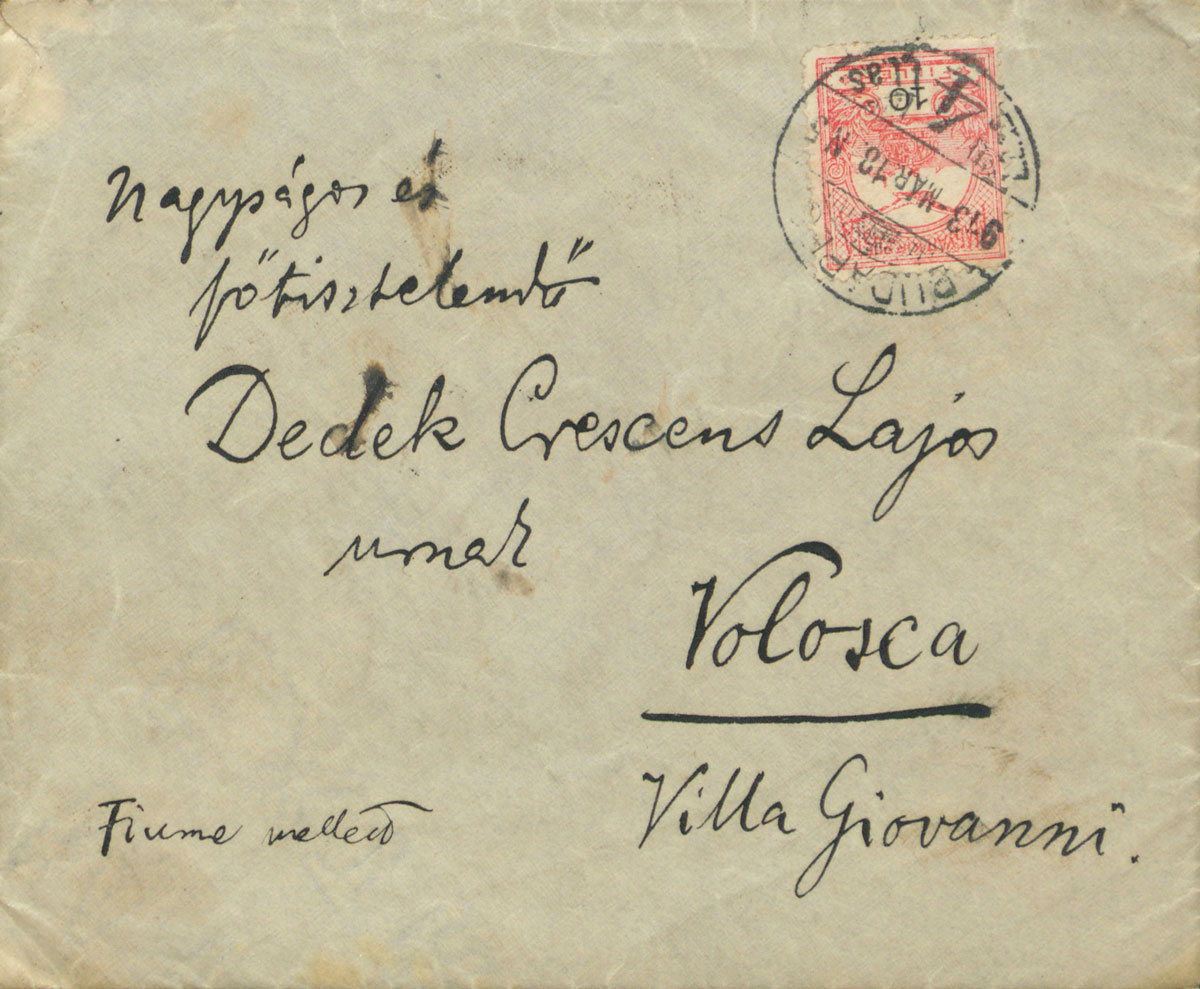 Nagyságos és
főtisztelendő
Dedek Crescens Lajos
urnak
Volosca
Villa Giovanni.
Fiume mellett
BUDAPEST
913 MÁR 18 N
10